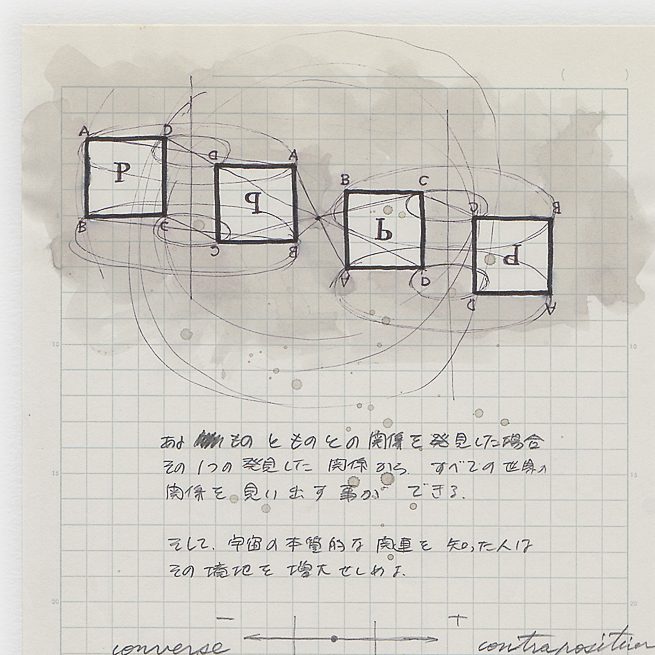 A D D A
P q
B C C B
B C C B
b d
A D D A
10 10
ある ものとものとの関係を発見した場合
その1つの発見した関係から、すべての世界の
関係を見い出す事ができる。
15 15
そして、宇宙の本質的な関連を知った人は
その境地を増大せしめよ。
20 20
− +
converse contraposition